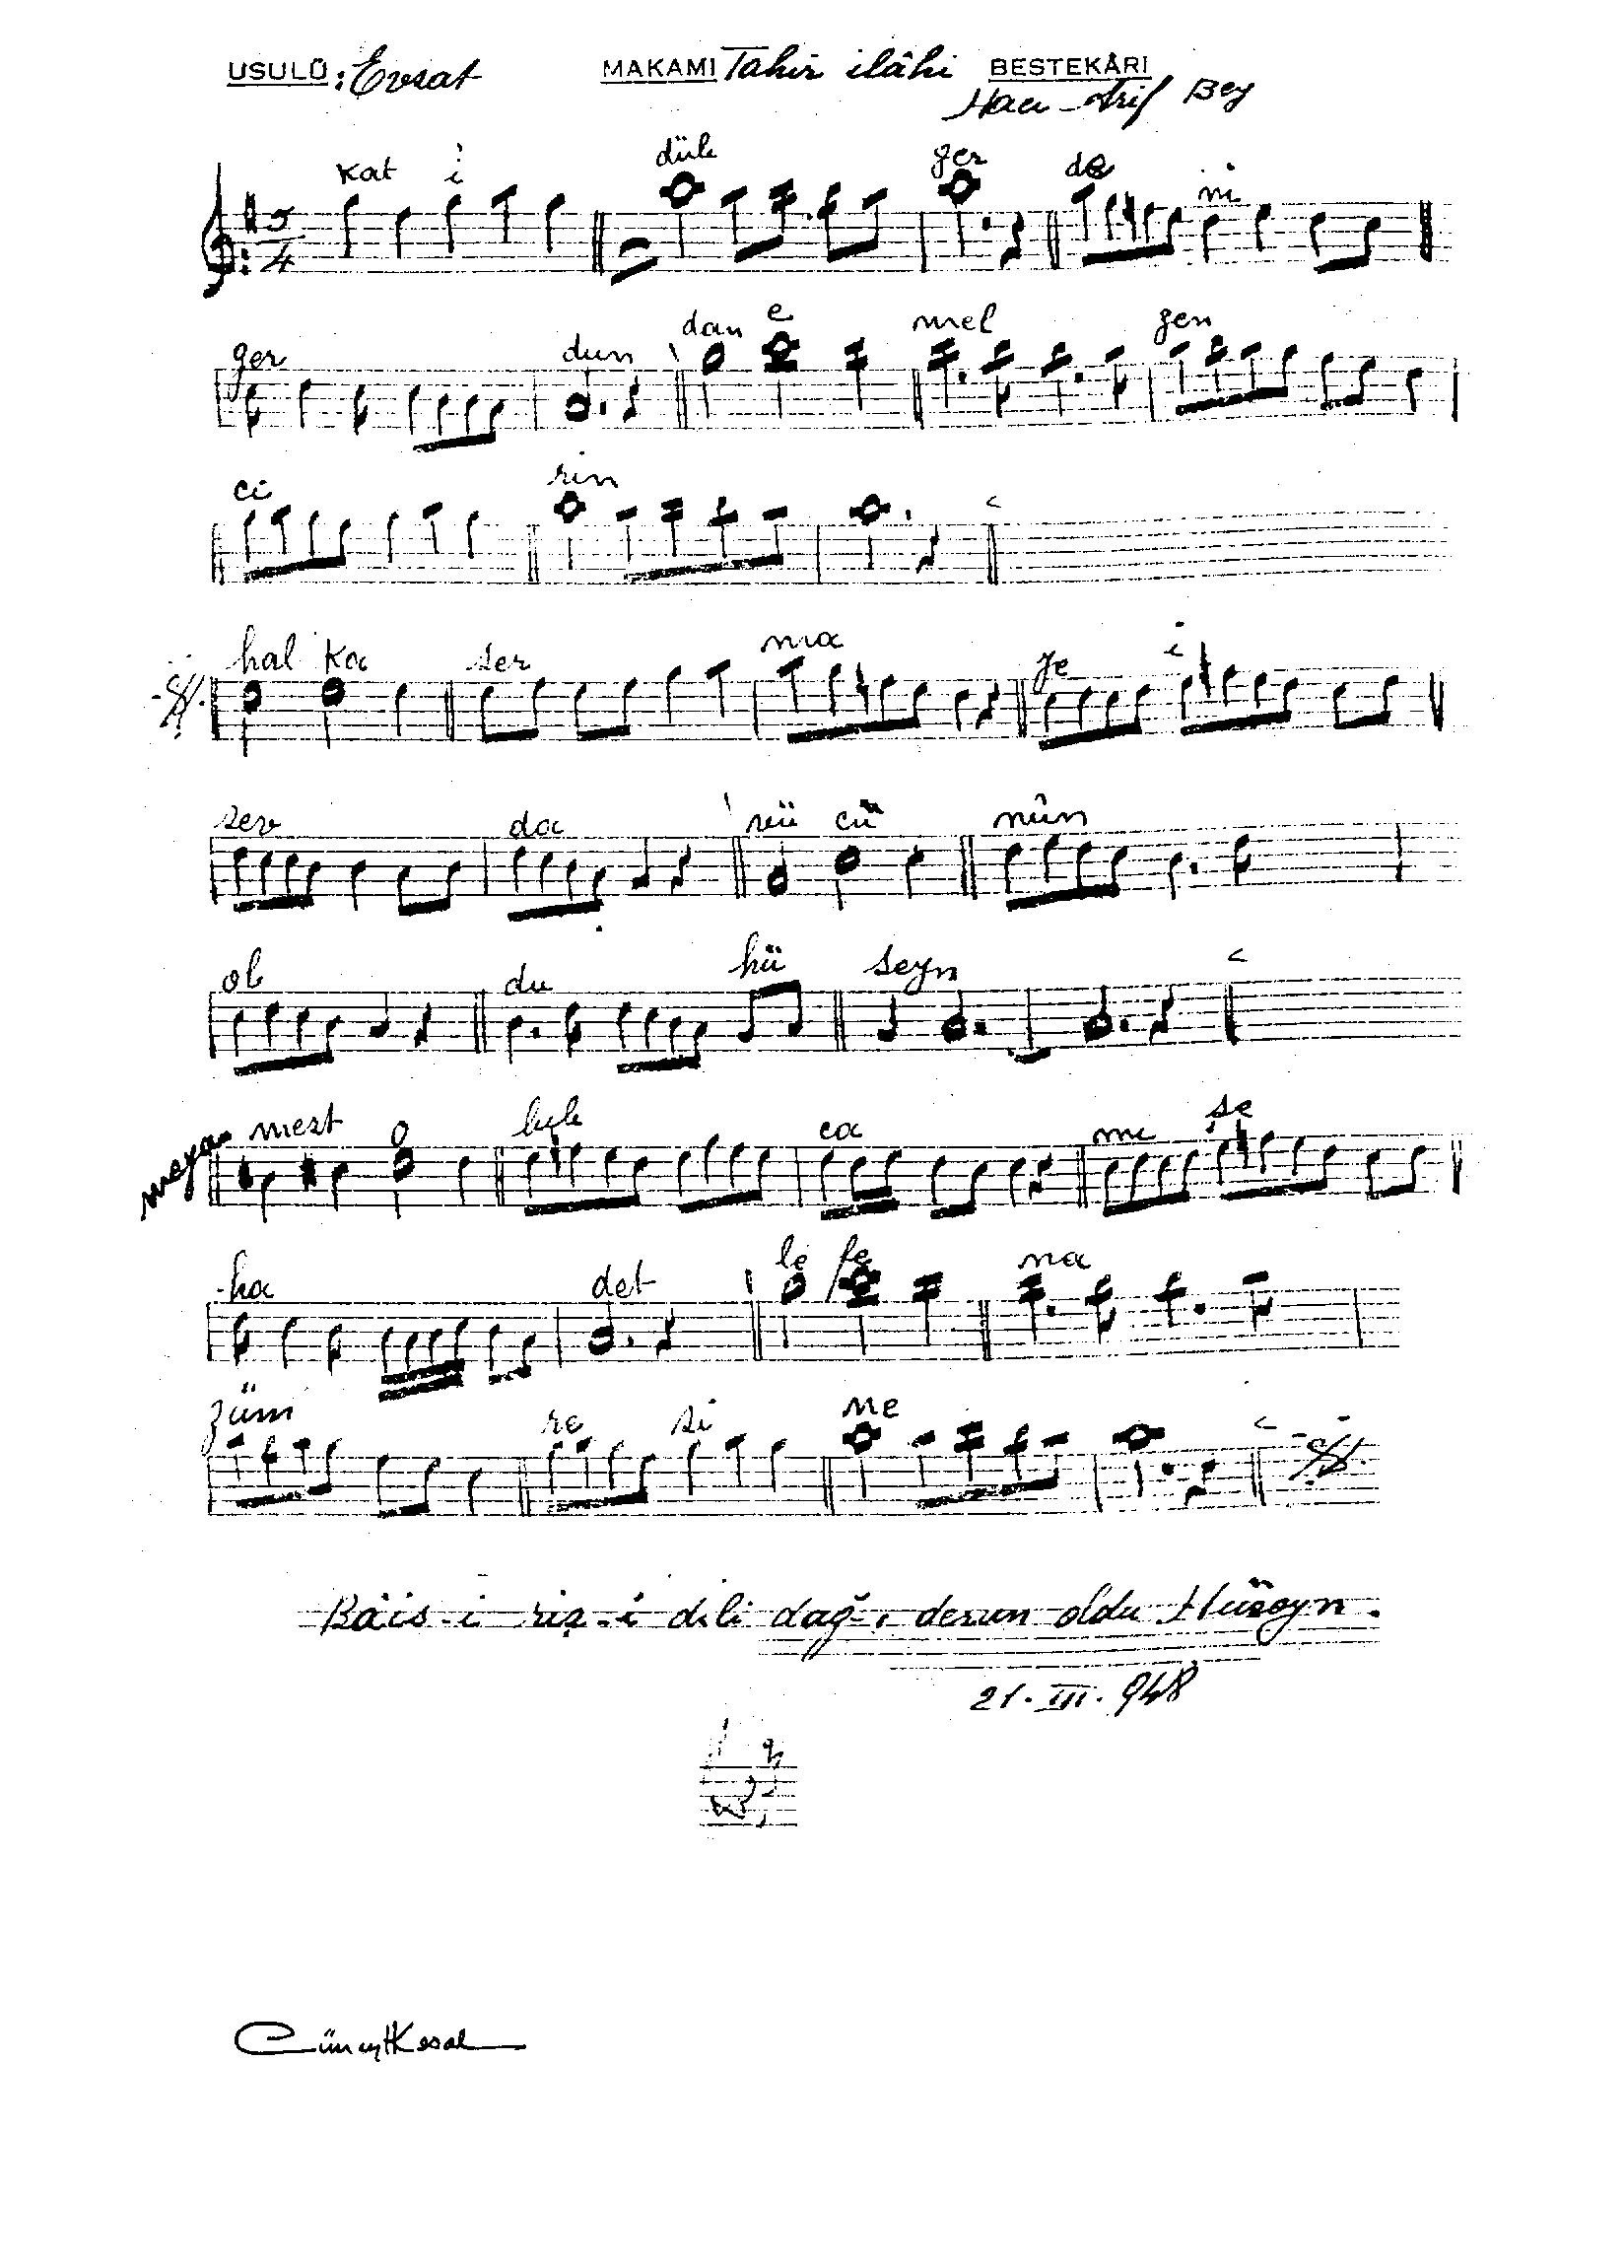 USULÜ : Evsat MAKAMI Tahir ilâhi BESTEKÂRI
Hacı Arif Bey
kat i dük ger de ni
5/4
ger dun dan e mel gen
ci rin
hal ka ser ma ye i
sev da rü cü nûn
ol du hü seyn
meyan mest o luk ca mı şe
ha det le fe na
züm re si ne
Bâis-i riş-i dili dağ-ı derun oldu Hüseyn.
21. III. 948
Cüneyt Kosal